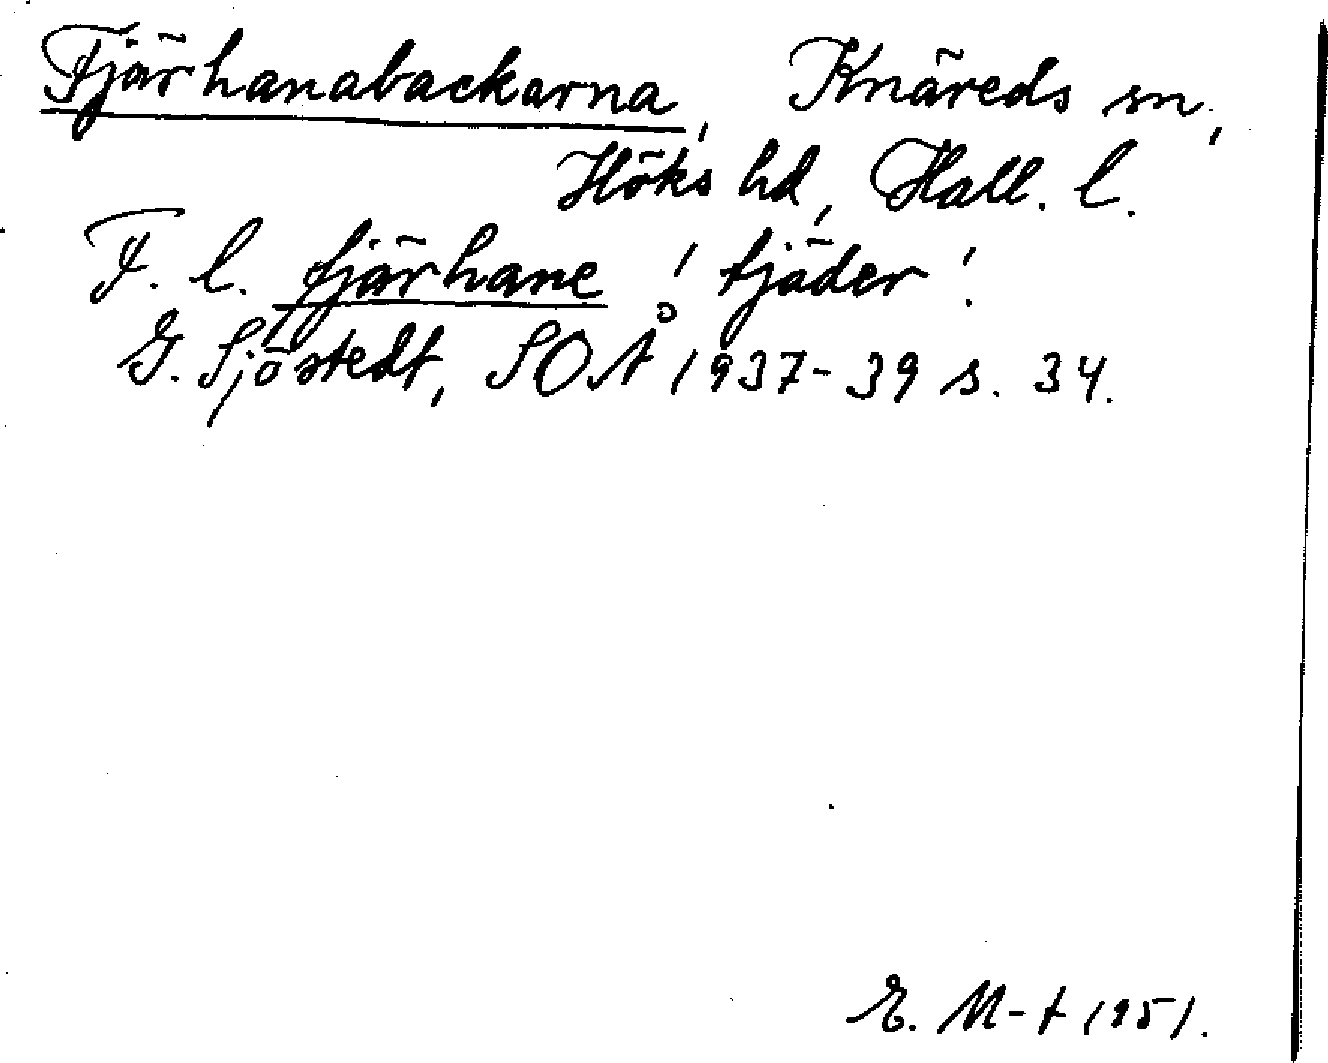 Fjärhanabackarna, Knäreds sn,
Höks hd, Hall. l.
F. l. fjärhane 'tjäder'.
G. Sjöstedt, SOÅ 1937-39 s. 34.
E. M-t 1951.